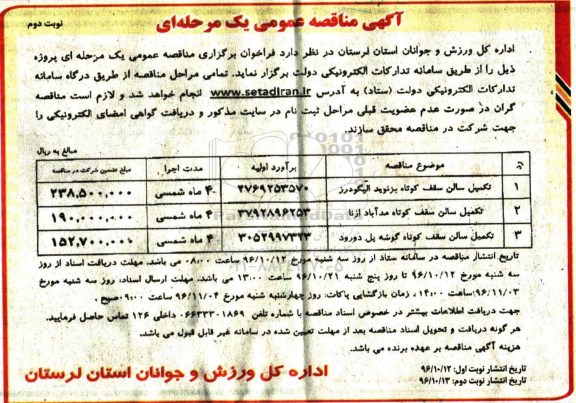 آگهی مناقصه عمومی یک مرحله‌ای
نوبت دوم
اداره کل ورزش و جوانان استان لرستان در نظر دارد فراخوان برگزاری مناقصه عمومی یک مرحله ای پروژه
ذیل را از طریق سامانه تدارکات الکترونیکی دولت برگزار نماید. تمامی مراحل مناقصه از طریق درگاه سامانه
تدارکات الکترونیکی دولت (ستاد) به آدرس www.setadiran.ir انجام خواهد شد و لازم است مناقصه
گران در صورت عدم عضویت قبلی مراحل ثبت نام در سایت مذکور و دریافت گواهی امضای الکترونیکی را
جهت شرکت در مناقصه محقق سازند.
مبالغ به ریال
موضوع مناقصه برآورد اولیه مدت اجرا مبلغ تضمین شرکت در مناقصه
۱ تکمیل سالن سقف کوتاه بزنوید الیگودرز ۴۷۶۹۲۵۳۵۷۰ ۴ ماه شمسی ۲۳۸,۵۰۰,۰۰۰
۲ تکمیل سالن سقف کوتاه مدآباد ازنا ۳۷۹۲۸۹۶۲۵۳ ۴ ماه شمسی ۱۹۰,۰۰۰,۰۰۰
۳ تکمیل سالن سقف کوتاه گوشه پل دورود ۳۰۵۲۹۹۷۳۲۳ ۴ ماه شمسی ۱۵۲,۷۰۰,۰۰۰
تاریخ انتشار مناقصه در سامانه ستاد از روز سه شنبه مورخ ۹۶/۱۰/۱۲ ساعت ۰۸:۰۰ می باشد. مهلت دریافت اسناد از روز
سه شنبه مورخ ۹۶/۱۰/۱۲ تا روز پنج شنبه ۹۶/۱۰/۲۱ ساعت ۱۳:۰۰ می باشد. مهلت ارسال اسناد: روز سه شنبه مورخ
۹۶/۱۱/۰۳ ساعت ۱۴:۰۰ ، زمان بازگشایی پاکات: روز چهارشنبه شنبه مورخ ۹۶/۱۱/۰۴ ساعت ۰۹:۰۰ صبح .
جهت دریافت اطلاعات بیشتر در خصوص اسناد مناقصه با شماره تلفن ۰۶۶۳۳۳۰۱۸۶۹ داخلی ۱۲۶ تماس حاصل فرمایید.
هر گونه دریافت و تحویل اسناد مناقصه بعد از مهلت تعیین شده در سامانه غیر قابل قبول می باشد.
هزینه آگهی مناقصه بر عهده برنده می باشد.
تاریخ انتشار نوبت اول: ۹۶/۱۰/۱۲
تاریخ انتشار نوبت دوم: ۹۶/۱۰/۱۳
اداره کل ورزش و جوانان استان لرستان